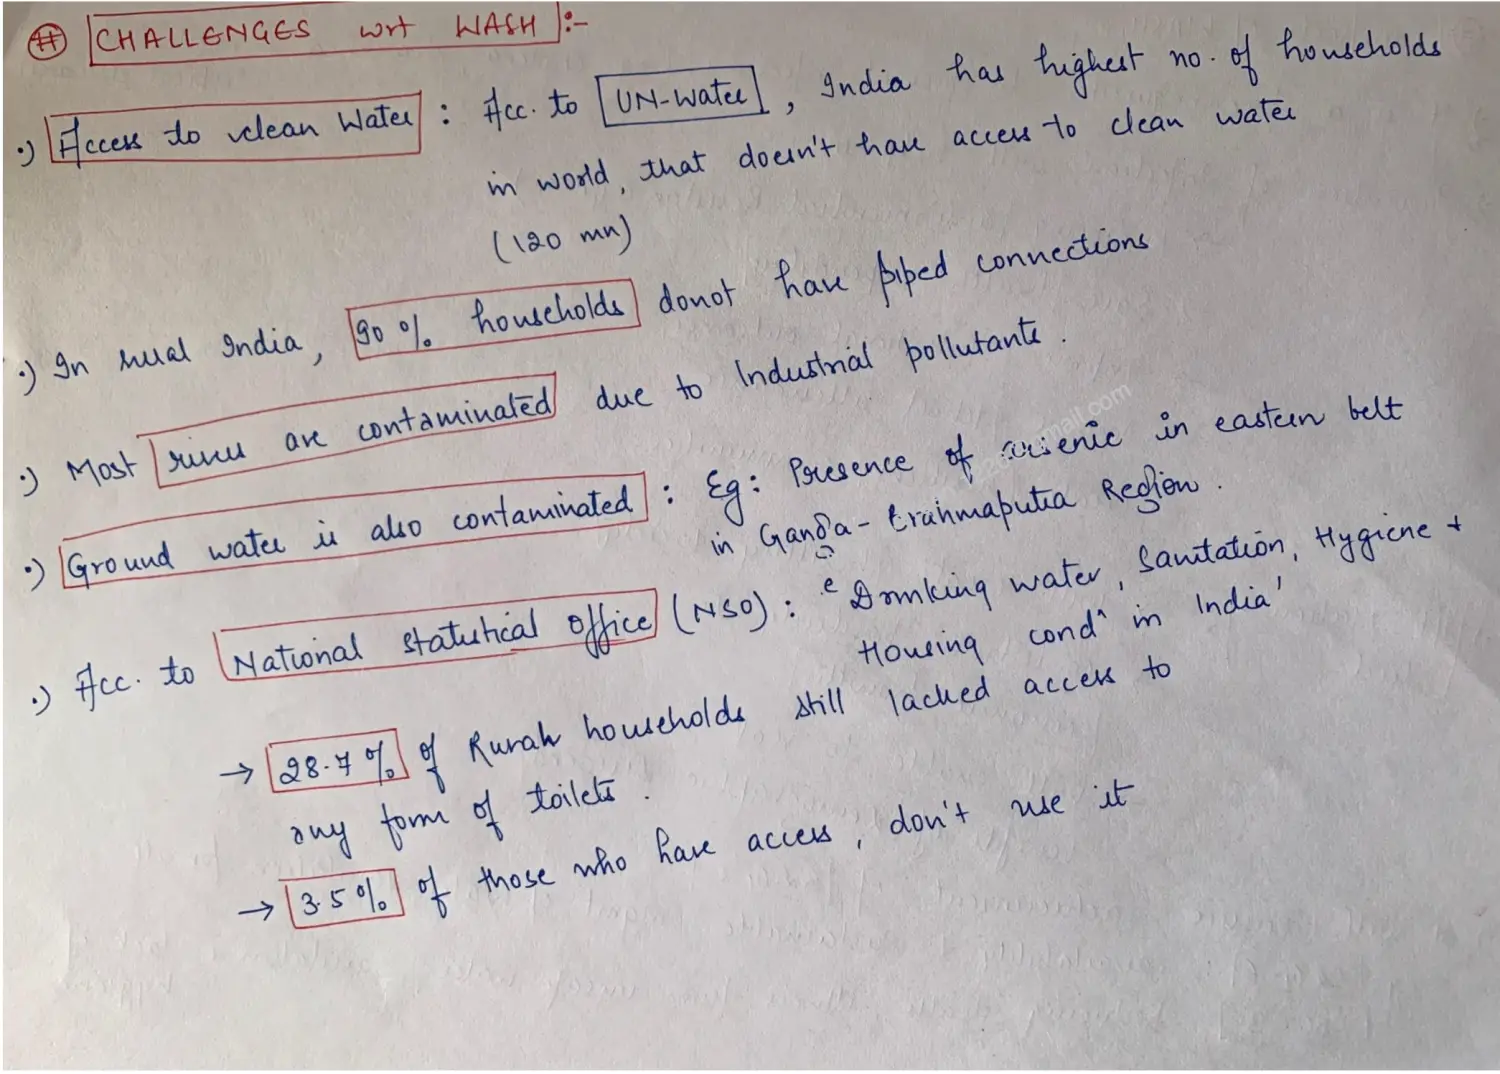 # CHALLENGES wrt WASH :-
•) Access to clean Water : Acc. to UN-Water , India has highest no. of households
in world, that doesn't have access to clean water
(120 mn)
•) In rural India, 90% households donot have piped connections
•) Most rivers are contaminated due to Industrial pollutants.
•) Ground water is also contaminated : Eg: Presence of arsenic in eastern belt
in Ganga-Brahmaputra Region.
•) Acc. to National Statistical Office (NSO): 'Drinking water, Sanitation, Hygiene +
Housing condn in India'
→ 28.7% of Rural households still lacked access to
any form of toilets.
→ 3.5% of those who have access, don't use it
mail.com